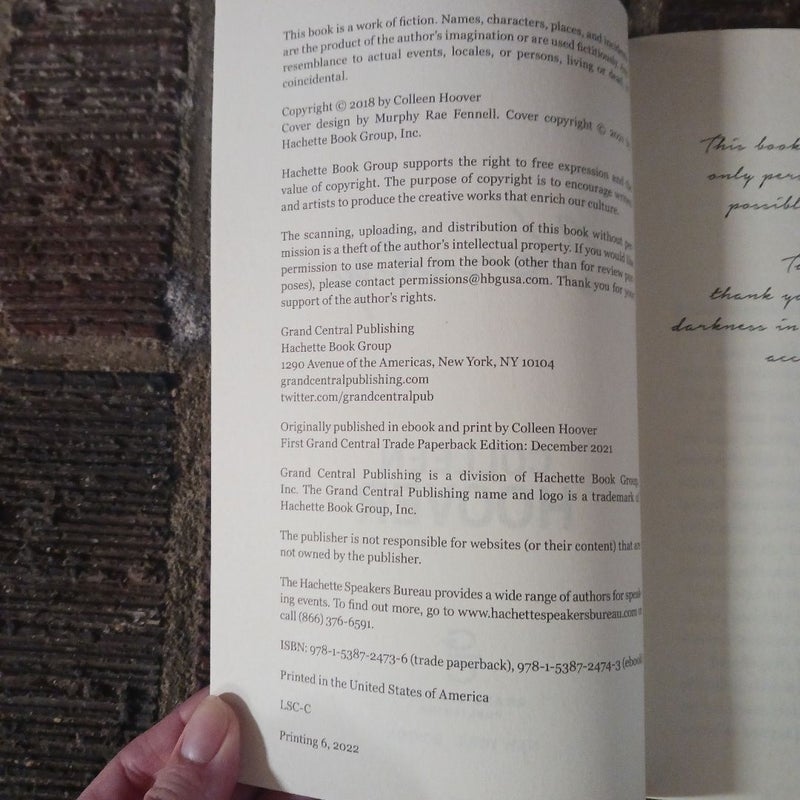 This book is a work of fiction. Names, characters, places, and incidents
are the product of the author's imagination or are used fictitiously. Any
resemblance to actual events, locales, or persons, living or dead, is
coincidental.
Copyright © 2018 by Colleen Hoover
Cover design by Murphy Rae Fennell. Cover copyright © 2021
Hachette Book Group, Inc.
Hachette Book Group supports the right to free expression and the
value of copyright. The purpose of copyright is to encourage writers
and artists to produce the creative works that enrich our culture.
The scanning, uploading, and distribution of this book without per-
mission is a theft of the author's intellectual property. If you would like
permission to use material from the book (other than for review pur-
poses), please contact permissions@hbgusa.com. Thank you for your
support of the author's rights.
Grand Central Publishing
Hachette Book Group
1290 Avenue of the Americas, New York, NY 10104
grandcentralpublishing.com
twitter.com/grandcentralpub
Originally published in ebook and print by Colleen Hoover
First Grand Central Trade Paperback Edition: December 2021
Grand Central Publishing is a division of Hachette Book Group,
Inc. The Grand Central Publishing name and logo is a trademark of
Hachette Book Group, Inc.
The publisher is not responsible for websites (or their content) that are
not owned by the publisher.
The Hachette Speakers Bureau provides a wide range of authors for speak-
ing events. To find out more, go to www.hachettespeakersbureau.com or
call (866) 376-6591.
ISBN: 978-1-5387-2473-6 (trade paperback), 978-1-5387-2474-3 (ebook)
Printed in the United States of America
LSC-C
Printing 6, 2022
This book
only
thank
darkness in